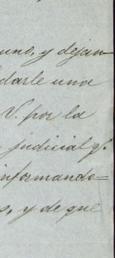 uno, y dejan
darle una
V. por la
judicial q.
informando=
s, y de que